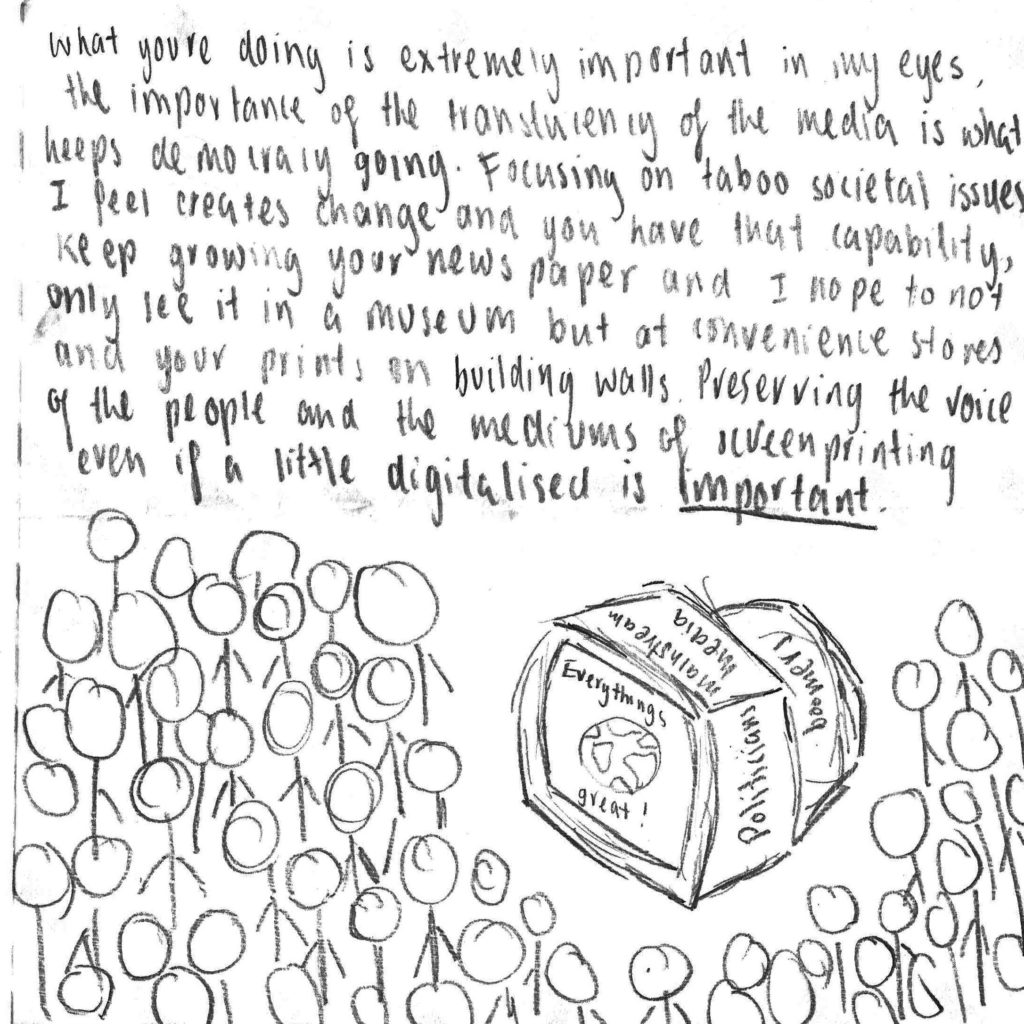 what you're doing is extremely important in my eyes,
the importance of the translucency of the media is what
keeps democracy going. Focusing on taboo societal issues
I feel creates change and you have that capability,
keep growing your news paper and I hope to not
only see it in a museum but at convenience stores
and your prints on building walls. Preserving the voice
of the people and the mediums of screenprinting
even if a little digitalised is important.
mainstream
media
boomers
Everythings
great!
Politicians